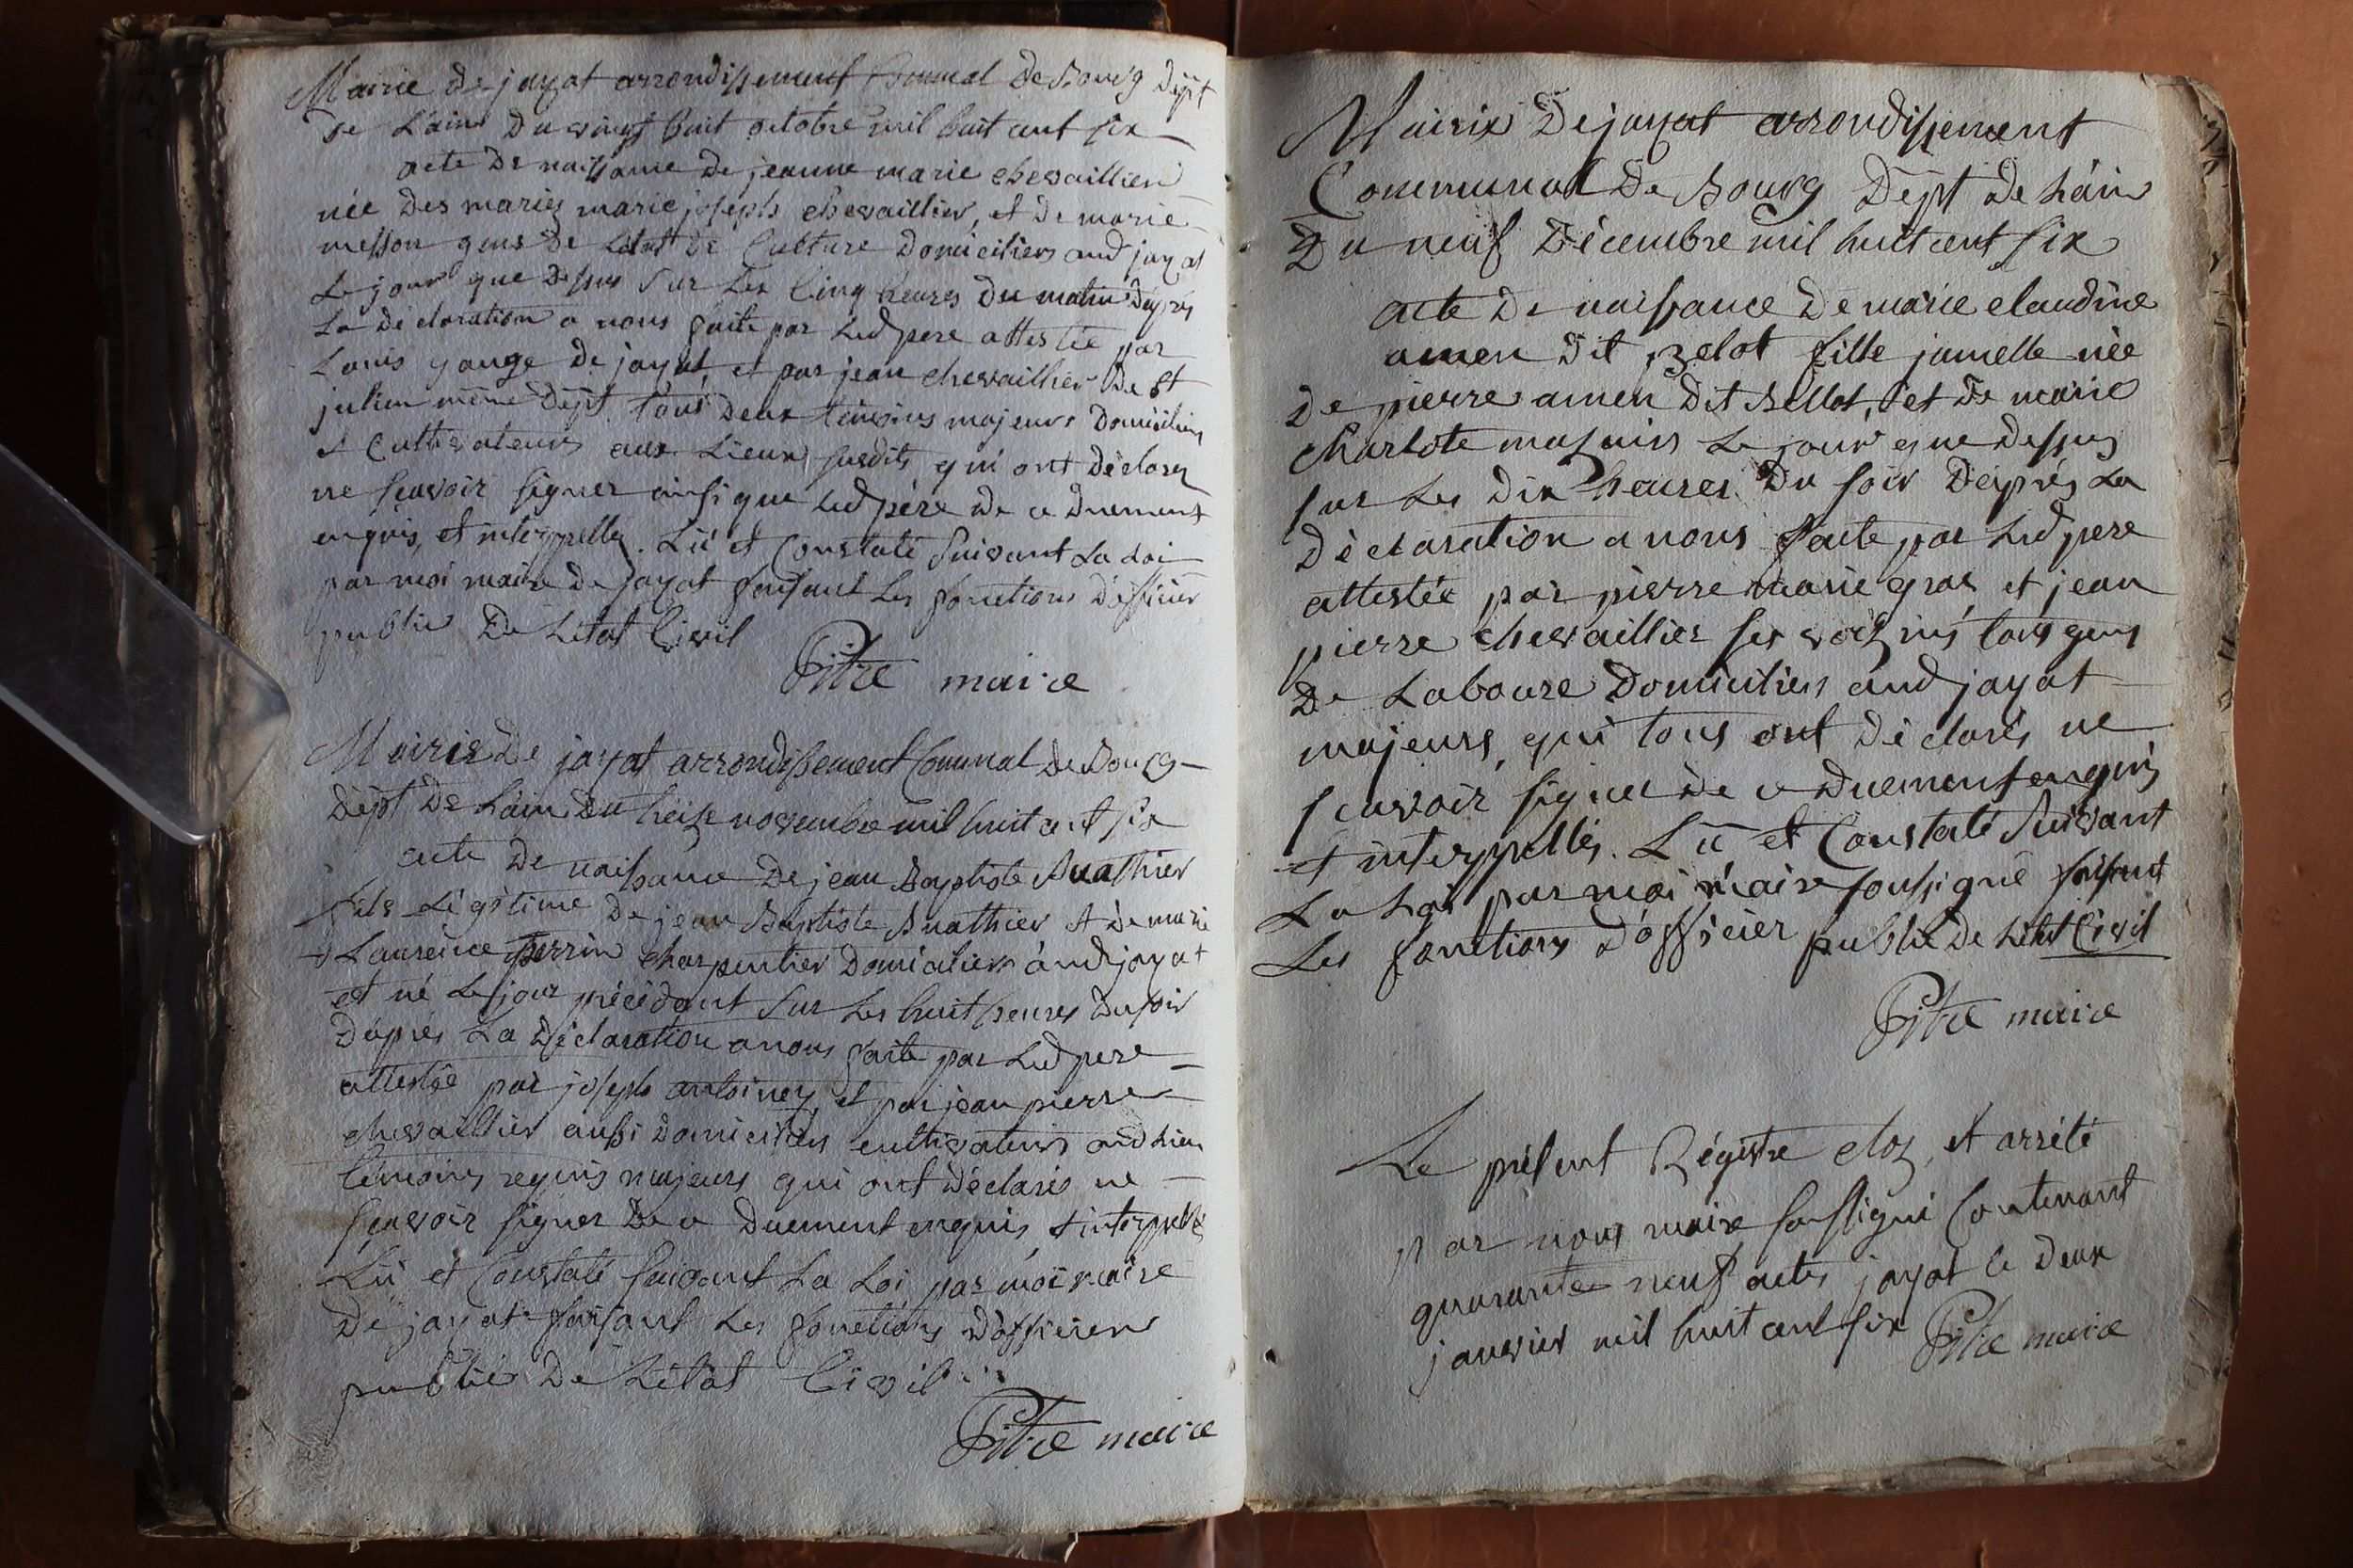 Mairie de jayat arrondissement Comunal de Bourg dept
de Lain du vingt huit octobre mil huit cent six
acte de naissance de jeanne marie chevaillier
née des mariés marie joseph chevaillier, et de marie
messon gens de Letat de Culture domiciliers aud jayat
Le jour que dessus sur Les Cinq heures du matin d'après
La déclaration a nous faite par Led pere attestée par
Louis gauge de jayat et par jean chevaillier de St
julien même dépt tous deux témoins majeurs domiciliers
et Cultivateurs aux Lieux susdits qui ont déclarez
ne scavoir signer ainsi que Led père de ce duement
enquis, et interppellez. Lû et Constaté suivant La Loi
par moi maire de jayat faisant Les fonctions d'officier
public de Létat Civil
Pitre maire
Mairie de jayat arrondissement Comunal de Bourg
dépt de Lain du treize novembre mil huit cent six
acte de naissance de jean Baptiste Buathier
fils Légitime de jean Baptiste Buathier et de marie
Laurence perrin charpentier domiciliers aud jayat
et né Le jour précédant sur Les huit heures du soir
d'après La déclaration a nous faite par Led pere
attestée par joseph antoiney et par jean pierre
chevaillier aussi domiciliers cultivateurs aud Lieu
témoins requis majeurs qui ont déclarés ne
scavoir signer de ce duement enquis, et interppellé
Lû et Constaté suivant La Loi par moi maire
de jayat faisant Les fonctions d'officier
public de Létat Civil
Pitre maire
Mairie de jayat arrondissement
Communal de Bourg dépt de Lain
Du neuf décembre mil huit cent six
acte de naissance de marie claudine
amen dit belot fille jumelle née
de pierre amen dit Bellot, et de marie
charlote mazuir Le jour que dessus
sur Les dix heures du soir d'après La
déclaration a nous faite par Led pere
attestée par pierre marie gras et jean
pierre chevaillier ses voizins tous gens
de Laboure domiciliers aud jayat
majeurs, qui tous ont déclarés ne
scavoir signer de ce duement enquis
et interppellés. Lû et Constaté suivant
La Loi par moi maire soussigné faisant
Les fonctions d'officier public de Létat Civil
Pitre maire
Le présent Régistre cloz, et arrété
par nous maire soussigné Contenant
quarante neuf actes jayat le deux
janvier mil huit cent six Pitre maire